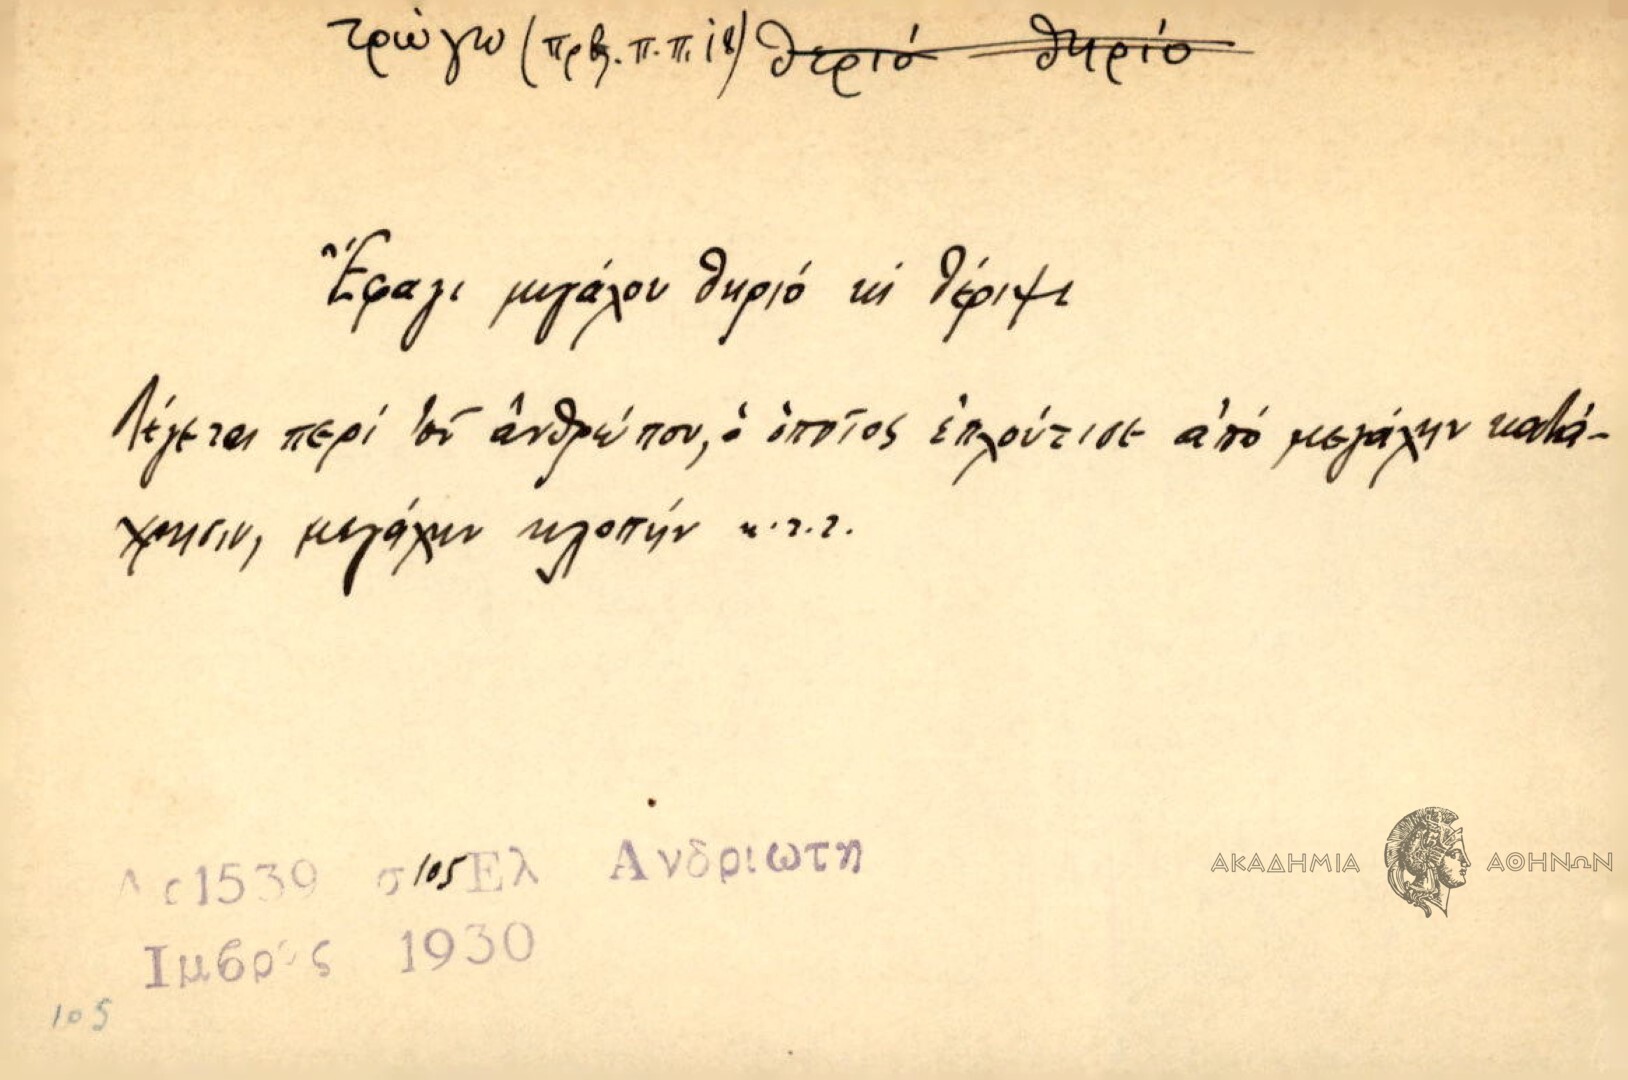 τρώγω (πρβ. π.π. ιβ) θεριό θηριό
Ἔφαγι μιγάλου θηριό κὶ θέριψι
Λέγεται περὶ τοῦ ἀνθρώπου, ὁ ὁποῖος ἐπλούτισε ἀπὸ μεγάλην κατά-
χρησιν, μεγάλην κλοπήν κ.τ.τ.
1539 σ 105 Ελ Ανδριωτη
Ιμβρος 1930
105
ΑΚΑΔΗΜΙΑ ΑΘΗΝΩΝ